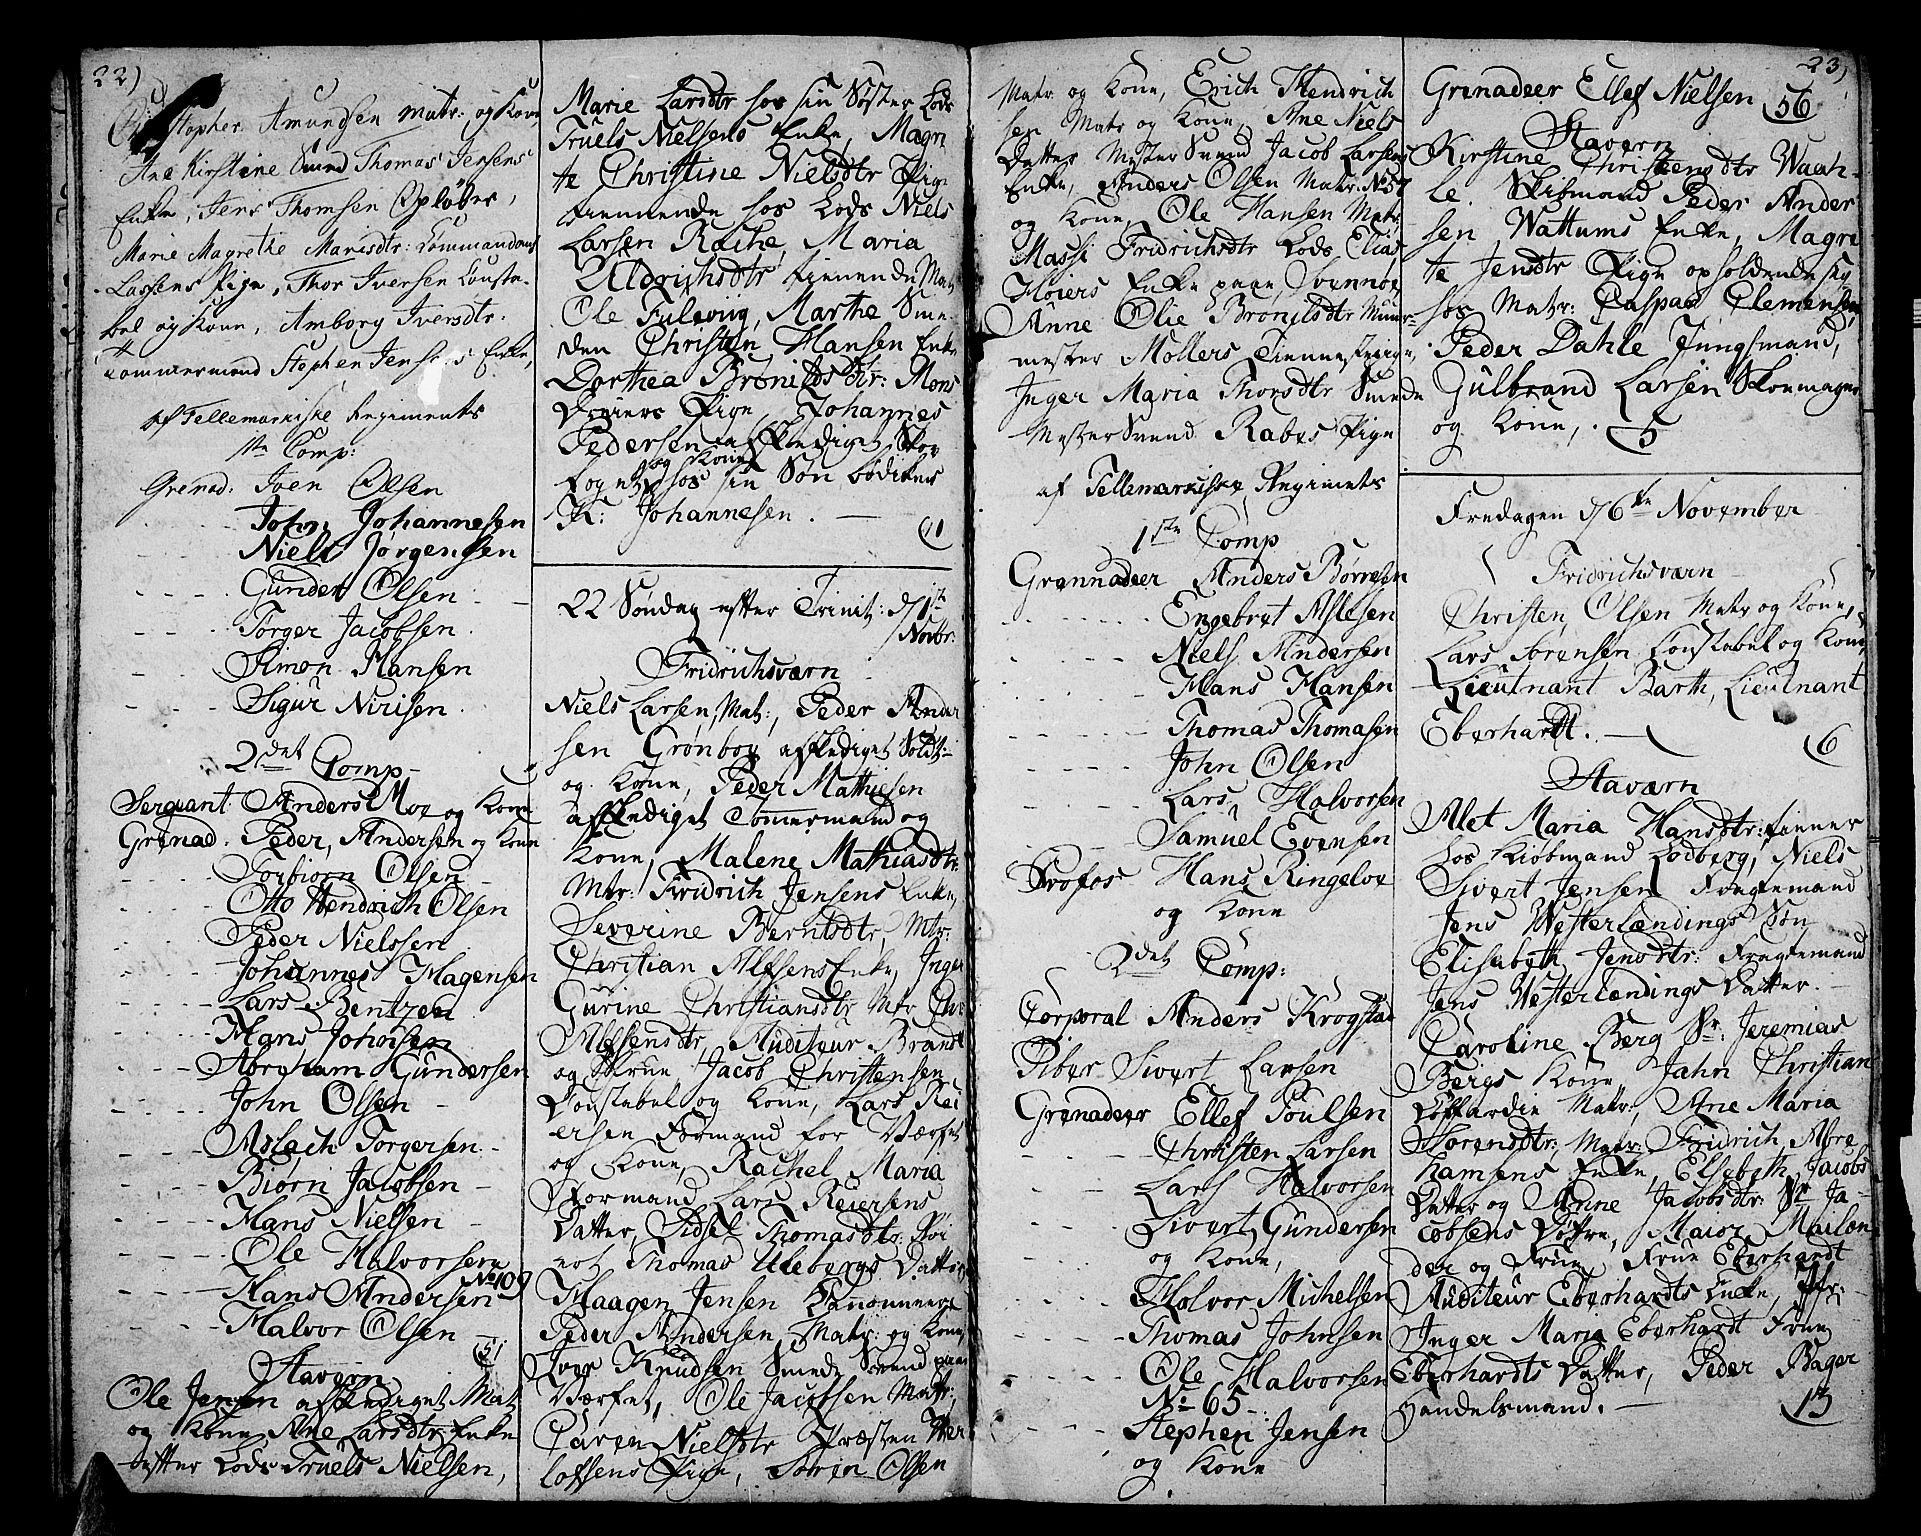 22)
Christopher Amundsen Matr: og Kone
Ane Kirstine Svend Thomas Jensens
Enke, Jens Thomsen Opløber,
Marie Magrethe Mariedtr: Commandant
Lassens Pige, Thor Iversen Consta-
bel og Kone, Amborg Iversdtr:
Tømmermand Stephen Jensens Enke,
af Tellemarkiske Regiments
1ste Comp:
Grenad: Iven Olsen
John Johannesen
Niels Jørgensen
Gunder Olsen
Torger Jacobsen
Simon Hansen
Sigur Nirisen
2det Comp
Sergeant Anders Moe og Kone
Grenad. Peder Andersen og Kone
Torbiørn Olsen
Otto Hendrich Olsen
Peder Nielssen
Johannes Hagensen
Lars Bentzen
Hans Johnsen
Abraham Gundersen
John Olsen
Aslach Torgersen
Biørn Jacobsen
Hans Nielsen
Ole Halvorsen
Hans Andersen No 109
Halvor Olsen
51
Stavern
Ole Jensen afskediget Mat
og Kone, Ane Larsdtr Enke
efter Lods Truels Nielsen,
Marie Larsdtr hos sin Søster Lods
Truels Nielsens Enke, Magre
te Christine Nielsdtr Pige
tiennende hos Lods Niels
Larsen Rache, Maria
Uldrichsdtr tienende Mat
Ole Fulevig, Marthe Sme
den Christen Hansen Enke
Dorthea Bronildsdtr: Mons
Pige, Johannes
Pedersen afskediget Skov
foget og Kone hos sin Søn Bødikers
K: Johannesen. 11
22 Søndag efter Trinit: d 1ste
Novbr:
Fridrichsværn
Niels Larsen, Mat:, Peder Ander
sen Grønboe afskediget Soldt:
og Kone, Peder Mathiesen
afskediget Tømmermand og
Kone, Malene Mathiasdtr
Mtr: Fridrich Jensens Enke,
Severine Berntsdtr, Mtr:
Christian Alfsens Enke, Inge
Gurine Christiansdtr Mtr Chr
Alfsensdtr, Auditeur Brandt
og Frue, Jacob Christensen
Constabel og Kone, Lars Rei
ersen Formand for Værfet
og Kone, Rachel Maria
Formand Lars Reiersens
Datter, Sidsel Thomasdtr:
Thomas Ulebergs Datter
Haagen Jensen Canonneer
Peder Andersen Matr: og Kone,
Iver Knudsen Smede Svend paa
Værfet, Ole Jacobsen Matr:,
Caren Nielsdtr Præsten
lofsens Pige, Søren Olsen
23)
Matr og Kone, Erich Hendrich
sen Matr og Kone, Ane Niels
Datter Mester Svend Jacob Larsens
Enke, Anders Olsen Matr: No 57
og Kone, Ole Hansen Matr:
Massi Fridrichsdtr Lods Elias
Høiers Enke paa Svennør
Anne Olie Bronildsdtr Muur-
mester Møllers Tienneste Pige,
Inger Maria Thorsdtr Smede
Mester Svend Rabes Pige
af Tellemarkiske Regimets
1ste Comp
Grennadeer Anders Børresen
Engebret Aslesen
Niels Andersen
Hans Hansen
Thomas Thomasen
John Olsen
Lars Halvorsen
Samuel Evensen
Profos Hans Ringeloe
og Kone
2det Comp:
Corporal Anders Krogstad
Piber Sivert Larsen
Grenadeer Ellef Poulsen
Christen Larsen
Lars Halvorsen
Sivert Gundersen
og Kone,
Halvor Michelsen
Thomas Johnsen
Ole Halvorsen
No 65
Stephen Jensen
og Kone
Grenadeer Ellef Nielsen 56
Stavern
Kirstine Christensdtr Waah-
le Skismand Peder Ander
sen Wattums Enke, Magre
te Jensdtr Pige opholdende sig
hos Matr: Caspar Clemensen,
Peder Dahle Jungsmand,
Gulbrand Larsen Skoemager
og Kone, 5
Fredagen d 6te November
Fridrichsværn
Christen Olsen Matr og Kone,
Lars Sørensen Constabel og Kone
Lieutnant Barth, Lieutnant
Eberhardt. 6
Staværn
Alet Maria Hansdtr: tiener
hos Kiøbmand Lodberg, Niels
Sivert Jensen Fragtemand
Jens Westerlændings Søn
Elisabeth Jensdtr: Fragtemand
Jens Westerlændings Datter.
Caroline Berg Sr: Jeremias
Bergs Kone, Jahn Christian
Coffardie Matr:, Ane Maria
Sørensdtr: Matr: Fridrich Abra
hamsens Enke, Elsebeth Jacobs
Datter og Anne Jacobsdtr: Sr Ja-
cobsens Døttre, Maior Mailæn
der og Frue, Frue Eberhardt
Auditeur Eberhardts Enke, Jfr:
Inger Maria Eberhardt Frue
Eberhardts Datter, Peder Bager
Handelsmand. 13